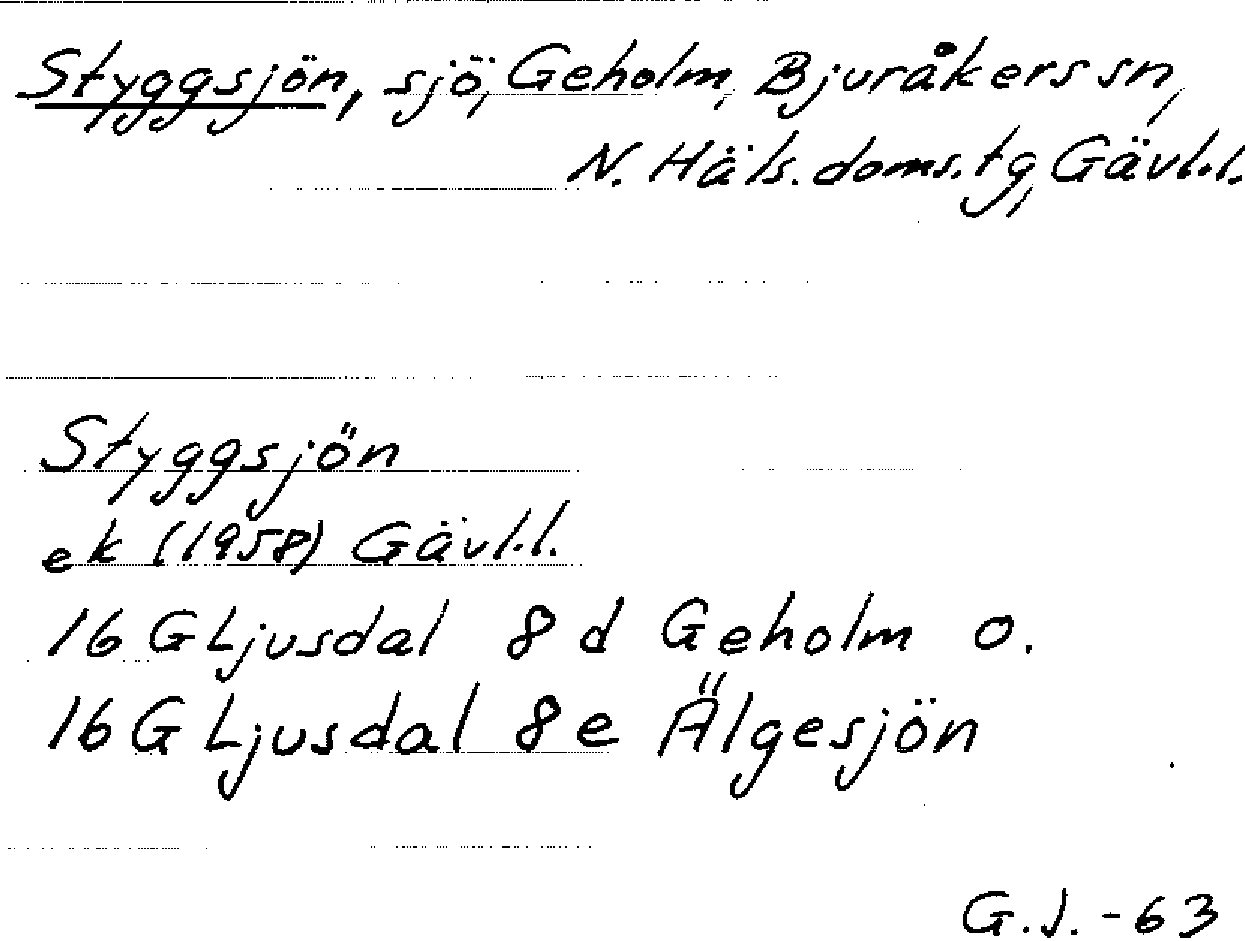 Styggsjön, sjö, Geholm, Bjuråkers sn,
N. Häls. doms. tg, Gävl.l.
Styggsjön
ek (1958) Gävl.l.
16 G Ljusdal 8 d Geholm o.
16 G Ljusdal 8 e Älgesjön
G.J. - 63